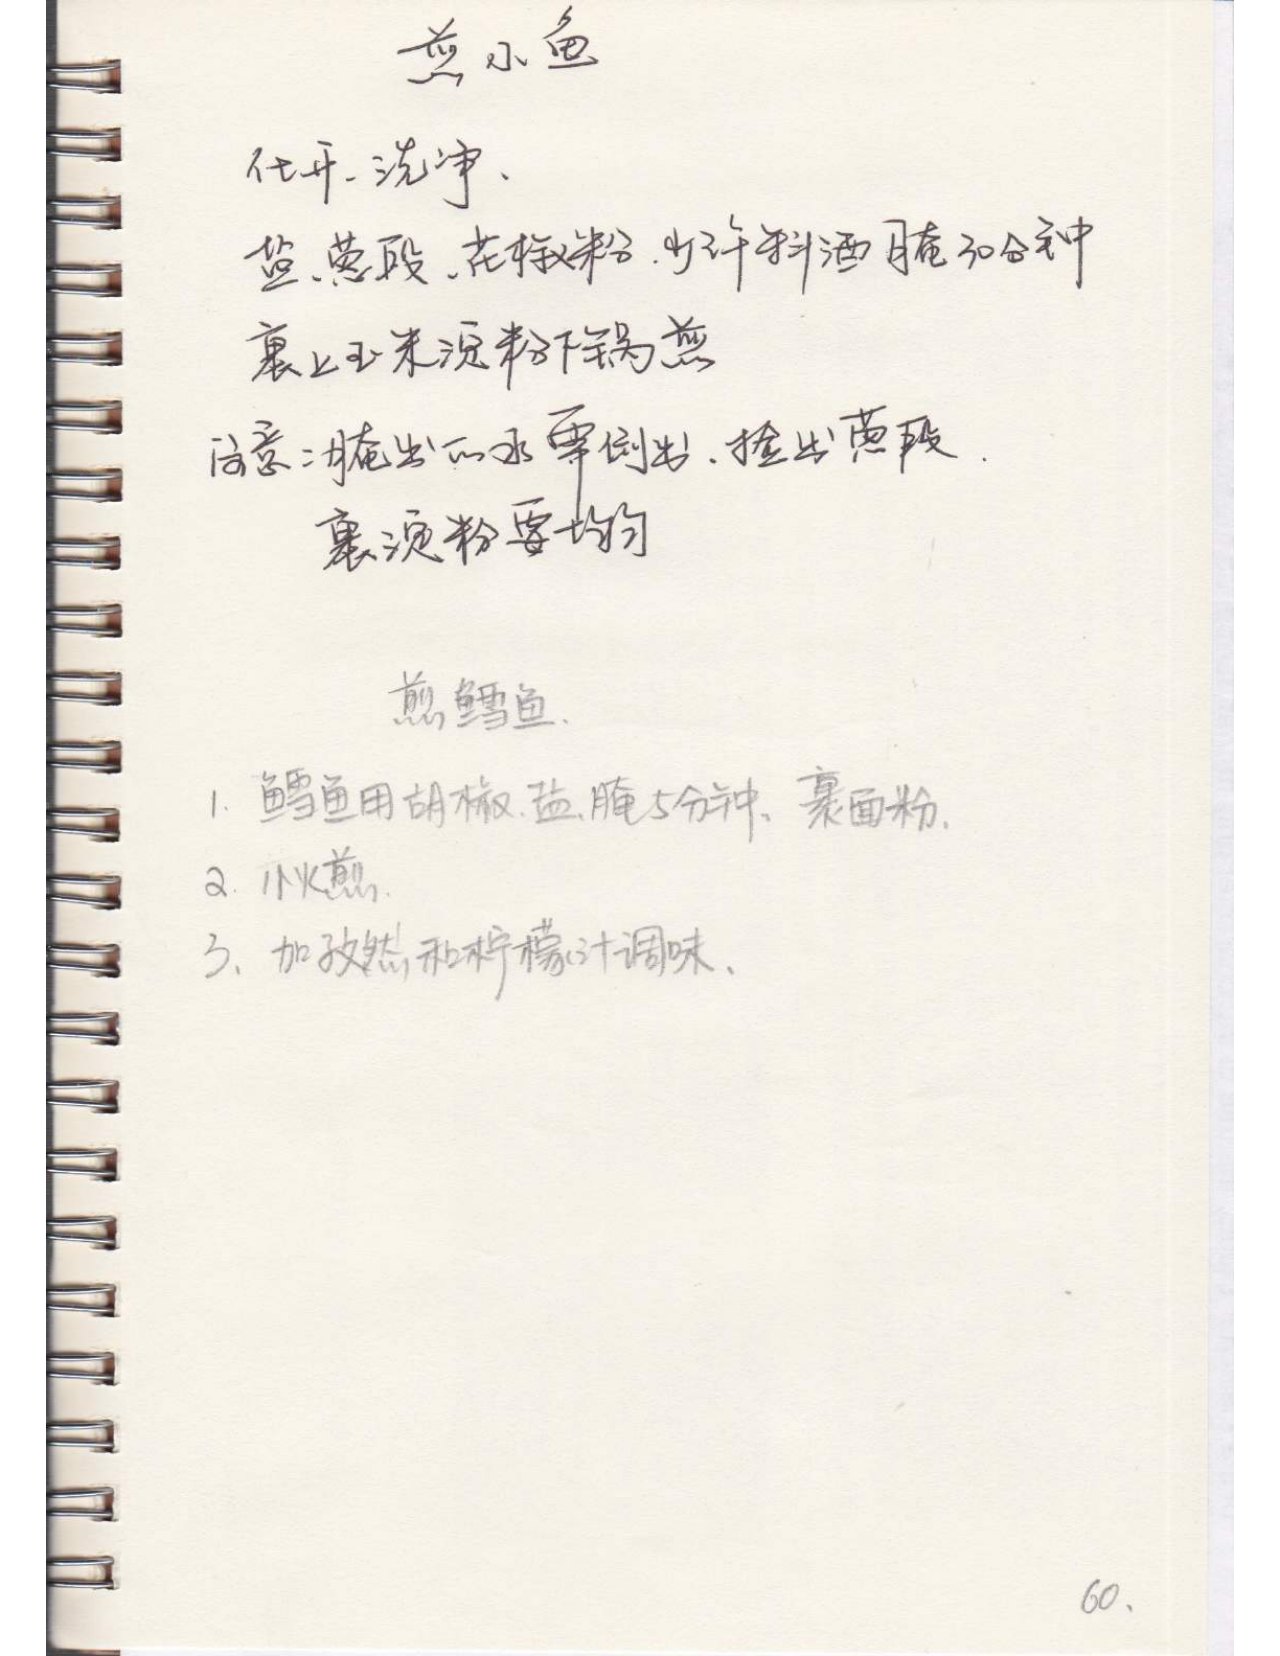 煎小鱼
化开、洗净、
盐、葱段、花椒粉、少许料酒腌30分钟
裹上玉米淀粉下锅煎
注意：腌出的水要倒出、捡出葱段.
裹淀粉要均匀
煎鳕鱼.
1. 鳕鱼用胡椒、盐、腌5分钟、裹面粉.
2. 小火煎.
3、加孜然和柠檬汁调味、
60、